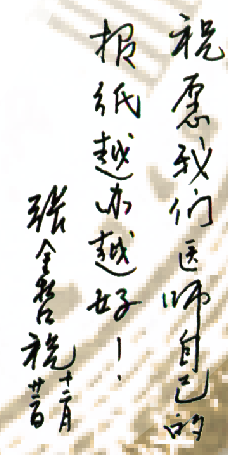 祝愿我们医师自己的
报纸越办越好！
张金哲祝
十二月
廿二日